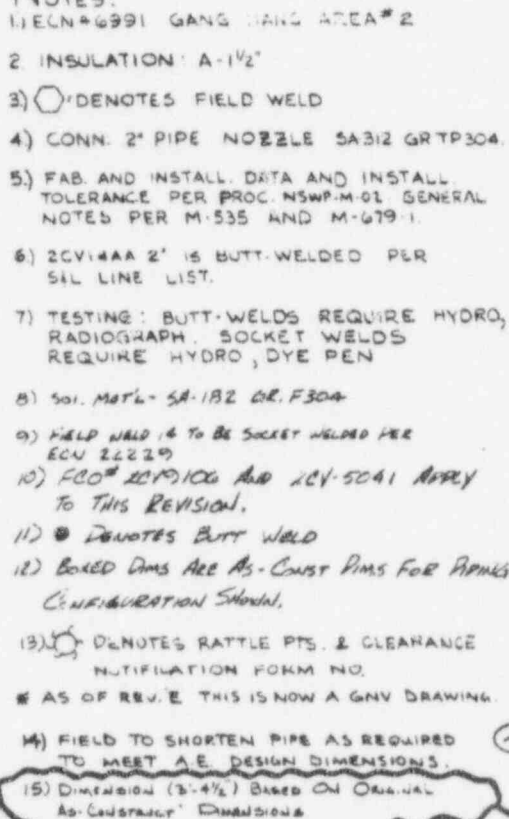 NOTES:
1.) ECN#6991 GANG HANG AREA #2
2. INSULATION: A-1 1/2"
3.) DENOTES FIELD WELD
4.) CONN. 2" PIPE NOZZLE SA312 GR TP304.
5.) FAB. AND INSTALL. DATA AND INSTALL.
TOLERANCE PER PROC. NSWP-M-02 GENERAL
NOTES PER M-535 AND M-679-1.
6.) 2CV14AA 2" IS BUTT-WELDED PER
S&L LINE LIST.
7) TESTING: BUTT-WELDS REQUIRE HYDRO,
RADIOGRAPH. SOCKET WELDS
REQUIRE HYDRO, DYE PEN
8) SOI. MAT'L - SA-182 GR. F304
9) FIELD WELD 14 TO BE SOCKET WELDED PER
ECN
10) FCO# AND 2CV-5041 APPLY
TO THIS REVISION.
11) DENOTES BUTT WELD
12) BOXED DIMS ARE AS-CONST DIMS FOR PIPING
CONFIGURATION SHOWN.
13) DENOTES RATTLE PTS. & CLEARANCE
NOTIFILATION FORM NO.
AS OF REV. E THIS IS NOW A GNV DRAWING.
14) FIELD TO SHORTEN PIPE AS REQUIRED
TO MEET A.E. DESIGN DIMENSIONS.
15) DIMENSION (3'-4 1/2") BASED ON ORIGINAL
AS-CONSTRUCT DIMENSIONS